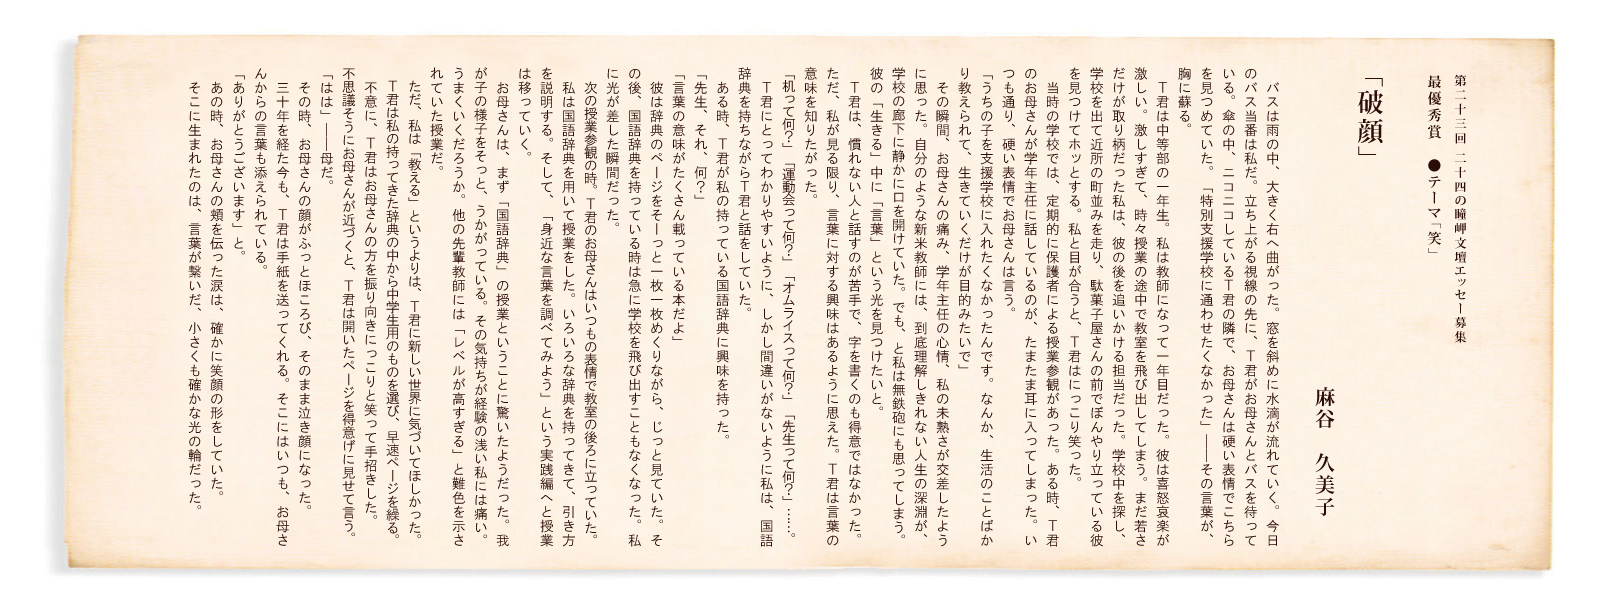 第二十三回 二十四の瞳岬文壇エッセー募集
最優秀賞 ●テーマ「笑」
「破顔」
麻谷 久美子
バスは雨の中、大きく右へ曲がった。窓を斜めに水滴が流れていく。今日
のバス当番は私だ。立ち上がる視線の先に、T君がお母さんとバスを待って
いる。傘の中、ニコニコしているT君の隣で、お母さんは硬い表情でこちら
を見つめていた。「特別支援学校に通わせたくなかった」――その言葉が、
胸に蘇る。
T君は中等部の一年生。私は教師になって一年目だった。彼は喜怒哀楽が
激しい。激しすぎて、時々授業の途中で教室を飛び出してしまう。まだ若さ
だけが取り柄だった私は、彼の後を追いかける担当だった。学校中を探し、
学校を出て近所の町並みを走り、駄菓子屋さんの前でぼんやり立っている彼
を見つけてホッとする。私と目が合うと、T君はにっこり笑った。
当時の学校では、定期的に保護者による授業参観があった。ある時、T君
のお母さんが学年主任に話しているのが、たまたま耳に入ってしまった。い
つも通り、硬い表情でお母さんは言う。
「うちの子を支援学校に入れたくなかったんです。なんか、生活のことばか
り教えられて、生きていくだけが目的みたいで」
その瞬間、お母さんの痛み、学年主任の心情、私の未熟さが交差したよう
に思った。自分のような新米教師には、到底理解しきれない人生の深淵が、
学校の廊下に静かに口を開けていた。でも、と私は無鉄砲にも思ってしまう。
彼の「生きる」中に「言葉」という光を見つけたいと。
T君は、慣れない人と話すのが苦手で、字を書くのも得意ではなかった。
ただ、私が見る限り、言葉に対する興味はあるように思えた。T君は言葉の
意味を知りたがった。
「机って何?」「運動会って何?」「オムライスって何?」「先生って何?」……。
T君にとってわかりやすいように、しかし間違いがないように私は、国語
辞典を持ちながらT君と話をしていた。
ある時、T君が私の持っている国語辞典に興味を持った。
「先生、それ、何?」
「言葉の意味がたくさん載っている本だよ」
彼は辞典のページをそーっと一枚一枚めくりながら、じっと見ていた。そ
の後、国語辞典を持っている時は急に学校を飛び出すこともなくなった。私
に光が差した瞬間だった。
次の授業参観の時。T君のお母さんはいつもの表情で教室の後ろに立っていた。
私は国語辞典を用いて授業をした。いろいろな辞典を持ってきて、引き方
を説明する。そして、「身近な言葉を調べてみよう」という実践編へと授業
は移っていく。
お母さんは、まず「国語辞典」の授業ということに驚いたようだった。我
が子の様子をそっと、うかがっている。その気持ちが経験の浅い私には痛い。
うまくいくだろうか。他の先輩教師には「レベルが高すぎる」と難色を示さ
れていた授業だ。
ただ、私は「教える」というよりは、T君に新しい世界に気づいてほしかった。
T君は私の持ってきた辞典の中から中学生用のものを選び、早速ページを繰る。
不意に、T君はお母さんの方を振り向きにっこりと笑って手招きした。
不思議そうにお母さんが近づくと、T君は開いたページを得意げに見せて言う。
「はは」――母だ。
その時、お母さんの顔がふっとほころび、そのまま泣き顔になった。
三十年を経た今も、T君は手紙を送ってくれる。そこにはいつも、お母さ
んからの言葉も添えられている。
「ありがとうございます」と。
あの時、お母さんの頬を伝った涙は、確かに笑顔の形をしていた。
そこに生まれたのは、言葉が繋いだ、小さくも確かな光の輪だった。